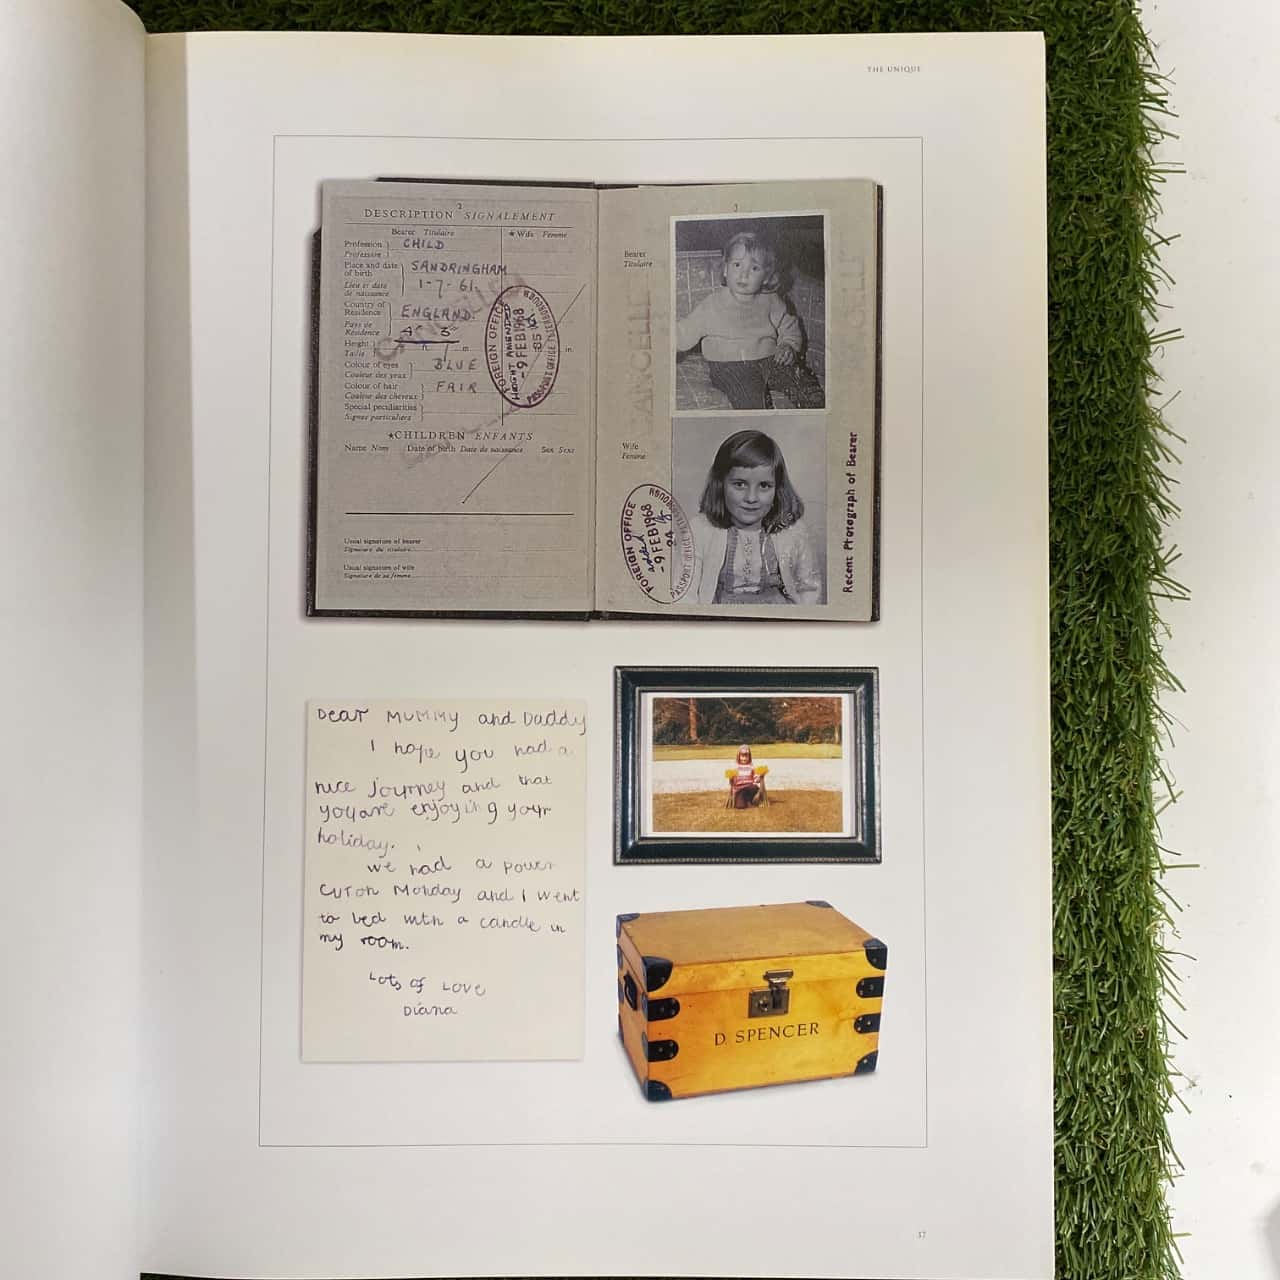 THE UNIQUE
2
DESCRIPTION SIGNALEMENT
Bearer Titulaire ★Wife Femme
Profession
Profession CHILD
Place and date
of birth SANDRINGHAM
Lieu et date
de naissance 1-7-61.
Country of
Residence ENGLAND.
Pays de
Résidence
Height 4 3
Taille m in.
Colour of eyes BLUE
Couleur des yeux
Colour of hair FAIR
Couleur des cheveux
Special peculiarities
Signes particuliers
FOREIGN OFFICE
HEIGHT AMENDED
-9 FEB 1968
PASSPORT OFFICE PETERBOROUGH
★CHILDREN ENFANTS
Name Nom Date of birth Date de naissance Sex Sexe
Usual signature of bearer
Signature du titulaire
Usual signature of wife
Signature de sa femme
3
Bearer
Titulaire
CANCELLED
Wife
Femme
FOREIGN OFFICE
added
-9 FEB 1968
PASSPORT OFFICE PETERBOROUGH
Recent Photograph of Bearer
Dear Mummy and Daddy
I hope you had a
nice journey and that
you are enjoying your
holiday.
We had a power
cut on Monday and I went
to bed with a candle in
my room.
Lots of Love
Diana
D. SPENCER
37